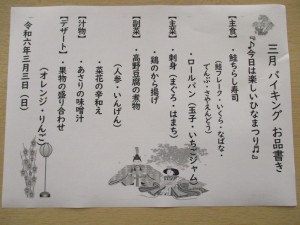 三月 バイキング お品書き
『♪今日は楽しいひなまつり♫』
【主食】
・鮭ちらし寿司
(鮭フレーク・いくら・なばな・
でんぶ・さやえんどう)
・ロールパン(玉子・いちごジャム)
【主菜】
・刺身(まぐろ・はまち)
・鶏のから揚げ
【副菜】
・高野豆腐の煮物
(人参・いんげん)
・菜花の辛和え
【汁物】
・あさりの味噌汁
【デザート】
・果物の盛り合わせ
(オレンジ・りんご)
令和六年三月三日(日)